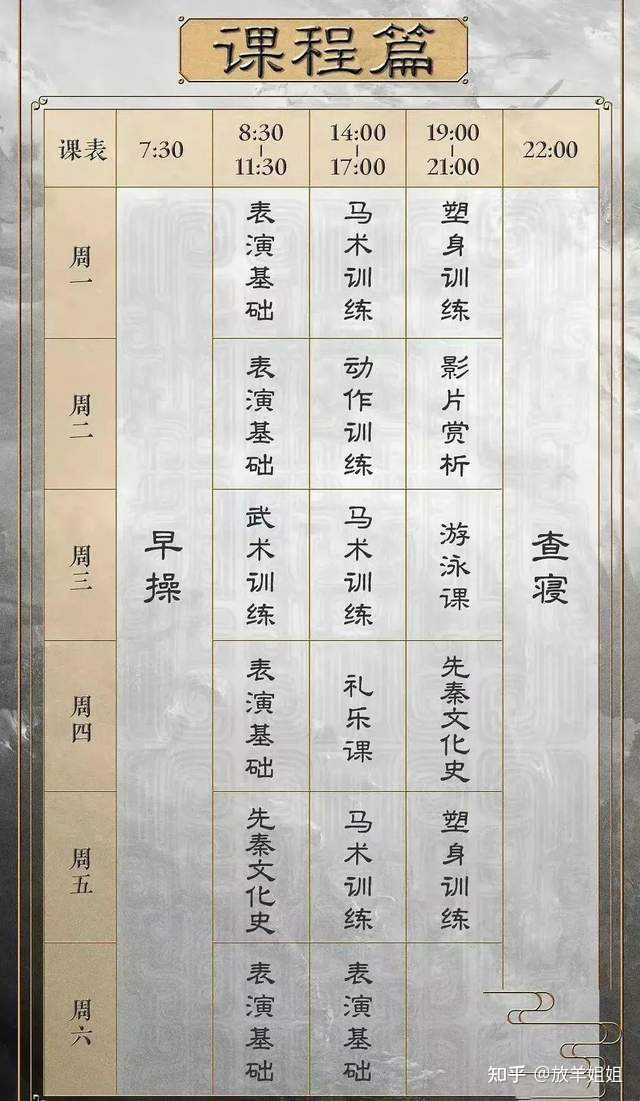 课程篇
课表 7:30 8:30-11:30 14:00-17:00 19:00-21:00 22:00
周一 表演基础 马术训练 塑身训练
周二 表演基础 动作训练 影片赏析
周三 早操 武术训练 马术训练 游泳课 查寝
周四 表演基础 礼乐课 先秦文化史
周五 先秦文化史 马术训练 塑身训练
周六 表演基础 表演基础
知乎 @放羊姐姐